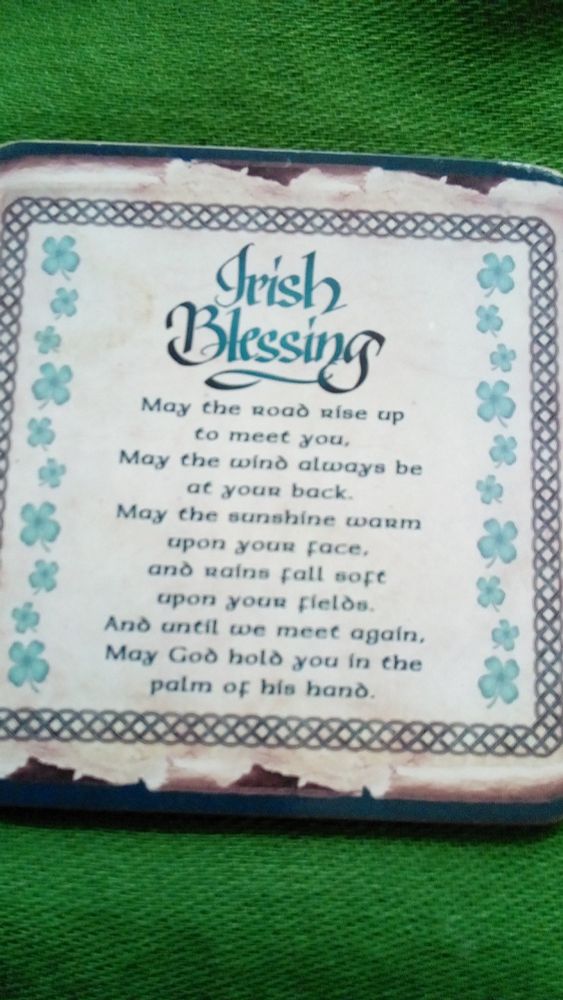 Irish
Blessing
May the road rise up
to meet you,
May the wind always be
at your back.
May the sunshine warm
upon your face,
and rains fall soft
upon your fields.
And until we meet again,
May God hold you in the
palm of his hand.